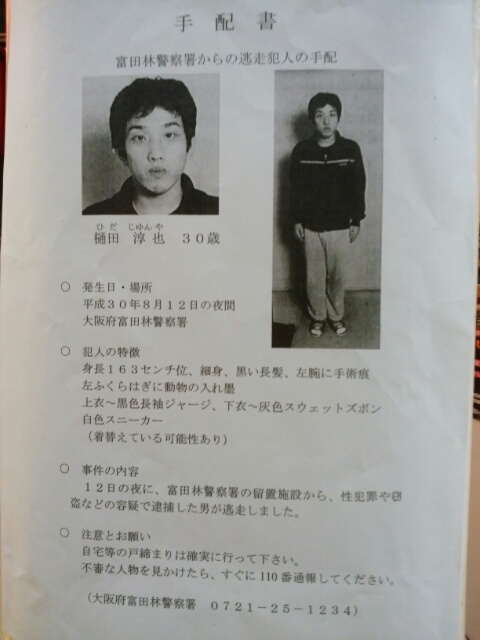 手配書
富田林警察署からの逃走犯人の手配
ひだ じゅんや
樋田 淳也 30歳
○ 発生日・場所
平成30年8月12日の夜間
大阪府富田林警察署
○ 犯人の特徴
身長163センチ位、細身、黒い長髪、左腕に手術痕
左ふくらはぎに動物の入れ墨
上衣~黒色長袖ジャージ、下衣~灰色スウェットズボン
白色スニーカー
(着替えている可能性あり)
○ 事件の内容
12日の夜に、富田林警察署の留置施設から、性犯罪や窃
盗などの容疑で逮捕した男が逃走しました。
○ 注意とお願い
自宅等の戸締まりは確実に行って下さい。
不審な人物を見かけたら、すぐに110番通報してください。
(大阪府富田林警察署 0721-25-1234)